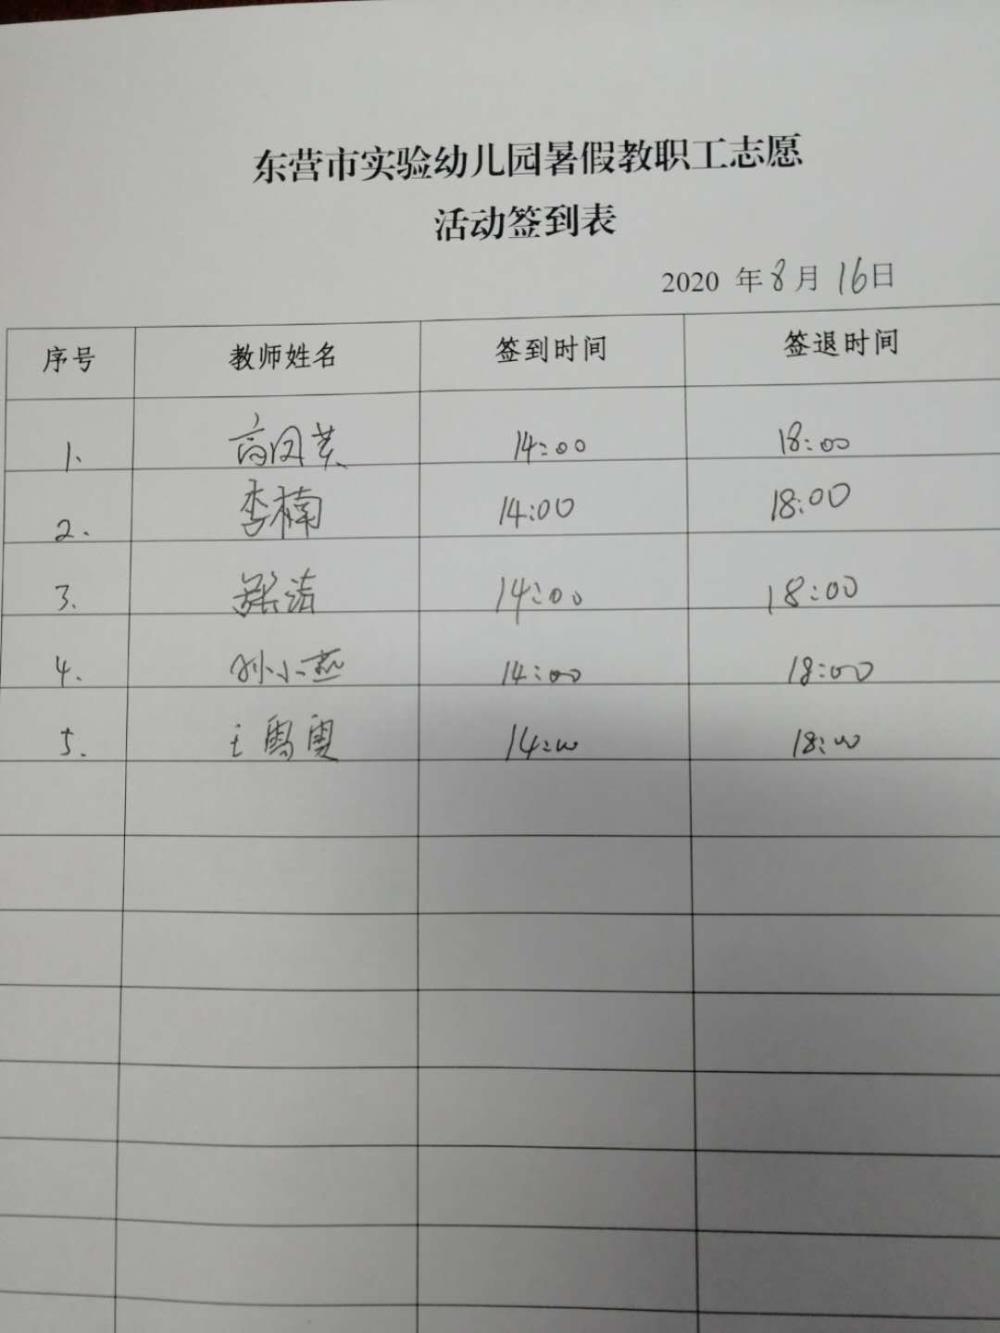 东营市实验幼儿园暑假教职工志愿
活动签到表
2020 年 8 月 16 日
序号 教师姓名 签到时间 签退时间
1. 高凤英 14:00 18:00
2. 李楠 14:00 18:00
3. 张洁 14:00 18:00
4. 孙小燕 14:00 18:00
5. 14:00 18:00